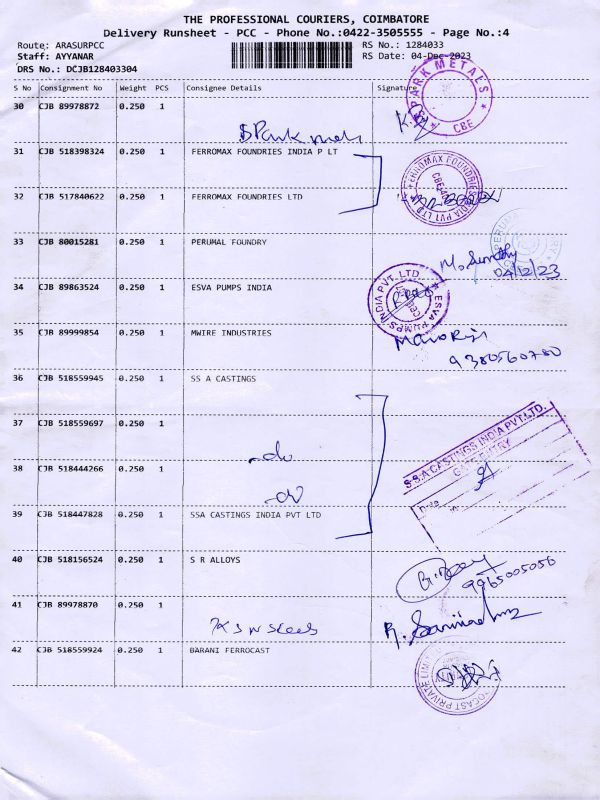 THE PROFESSIONAL COURIERS, COIMBATORE
Delivery Runsheet - PCC - Phone No.:0422-3505555 - Page No.:4
Route: ARASURPCC RS No.: 1284033
Staff: AYYANAR RS Date: 04-Dec-2023
DRS No.: DCJB128403304
S No Consignment No Weight PCS Consignee Details Signature
30 CJB 89978872 0.250 1
SPARK METALS CBE
31 CJB 518398324 0.250 1 FERROMAX FOUNDRIES INDIA P LT
FERROMAX FOUNDRIES INDIA PVT LTD
32 CJB 517840622 0.250 1 FERROMAX FOUNDRIES LTD
33 CJB 80015281 0.250 1 PERUMAL FOUNDRY
04/12/23
34 CJB 89863524 0.250 1 ESVA PUMPS INDIA
ESVA PUMPS INDIA PVT. LTD
35 CJB 89999854 0.250 1 MWIRE INDUSTRIES
9380560780
36 CJB 518559945 0.250 1 SS A CASTINGS
37 CJB 518559697 0.250 1
S.S.A CASTINGS INDIA PVT.LTD.
GATE ENTRY
38 CJB 518444266 0.250 1
Date
39 CJB 518447828 0.250 1 SSA CASTINGS INDIA PVT LTD
40 CJB 518156524 0.250 1 S R ALLOYS
9965005056
41 CJB 89978870 0.250 1
42 CJB 518559924 0.250 1 BARANI FERROCAST